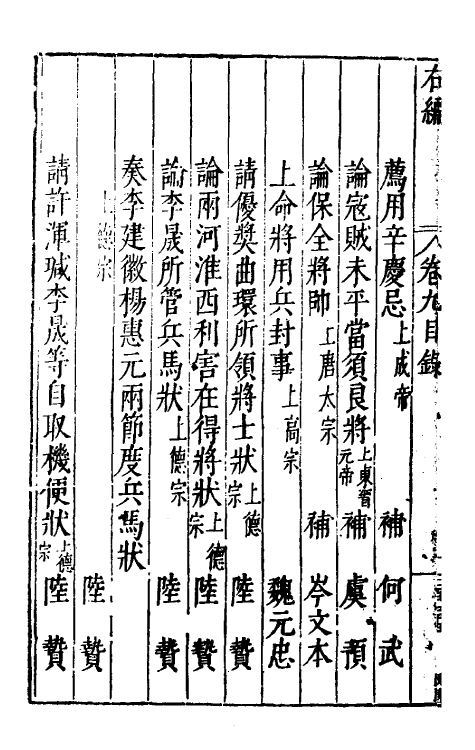 右編 卷九目錄
薦用辛慶忌上成帝 補 何武
論寇賊未平當須良將上東晉元帝 補 虞預
論保全將帥上唐太宗 補 岑文本
上命將用兵封事上高宗 魏元忠
請優奬曲環所領將士狀上德宗 陸贄
論兩河淮西利害在得將狀上德宗 陸贄
論李晟所管兵馬狀上德宗 陸贄
奏李建徽楊惠元兩節度兵馬狀
上德宗 陸贄
請許渾瑊李晟等自取機便狀上德宗 陸贄